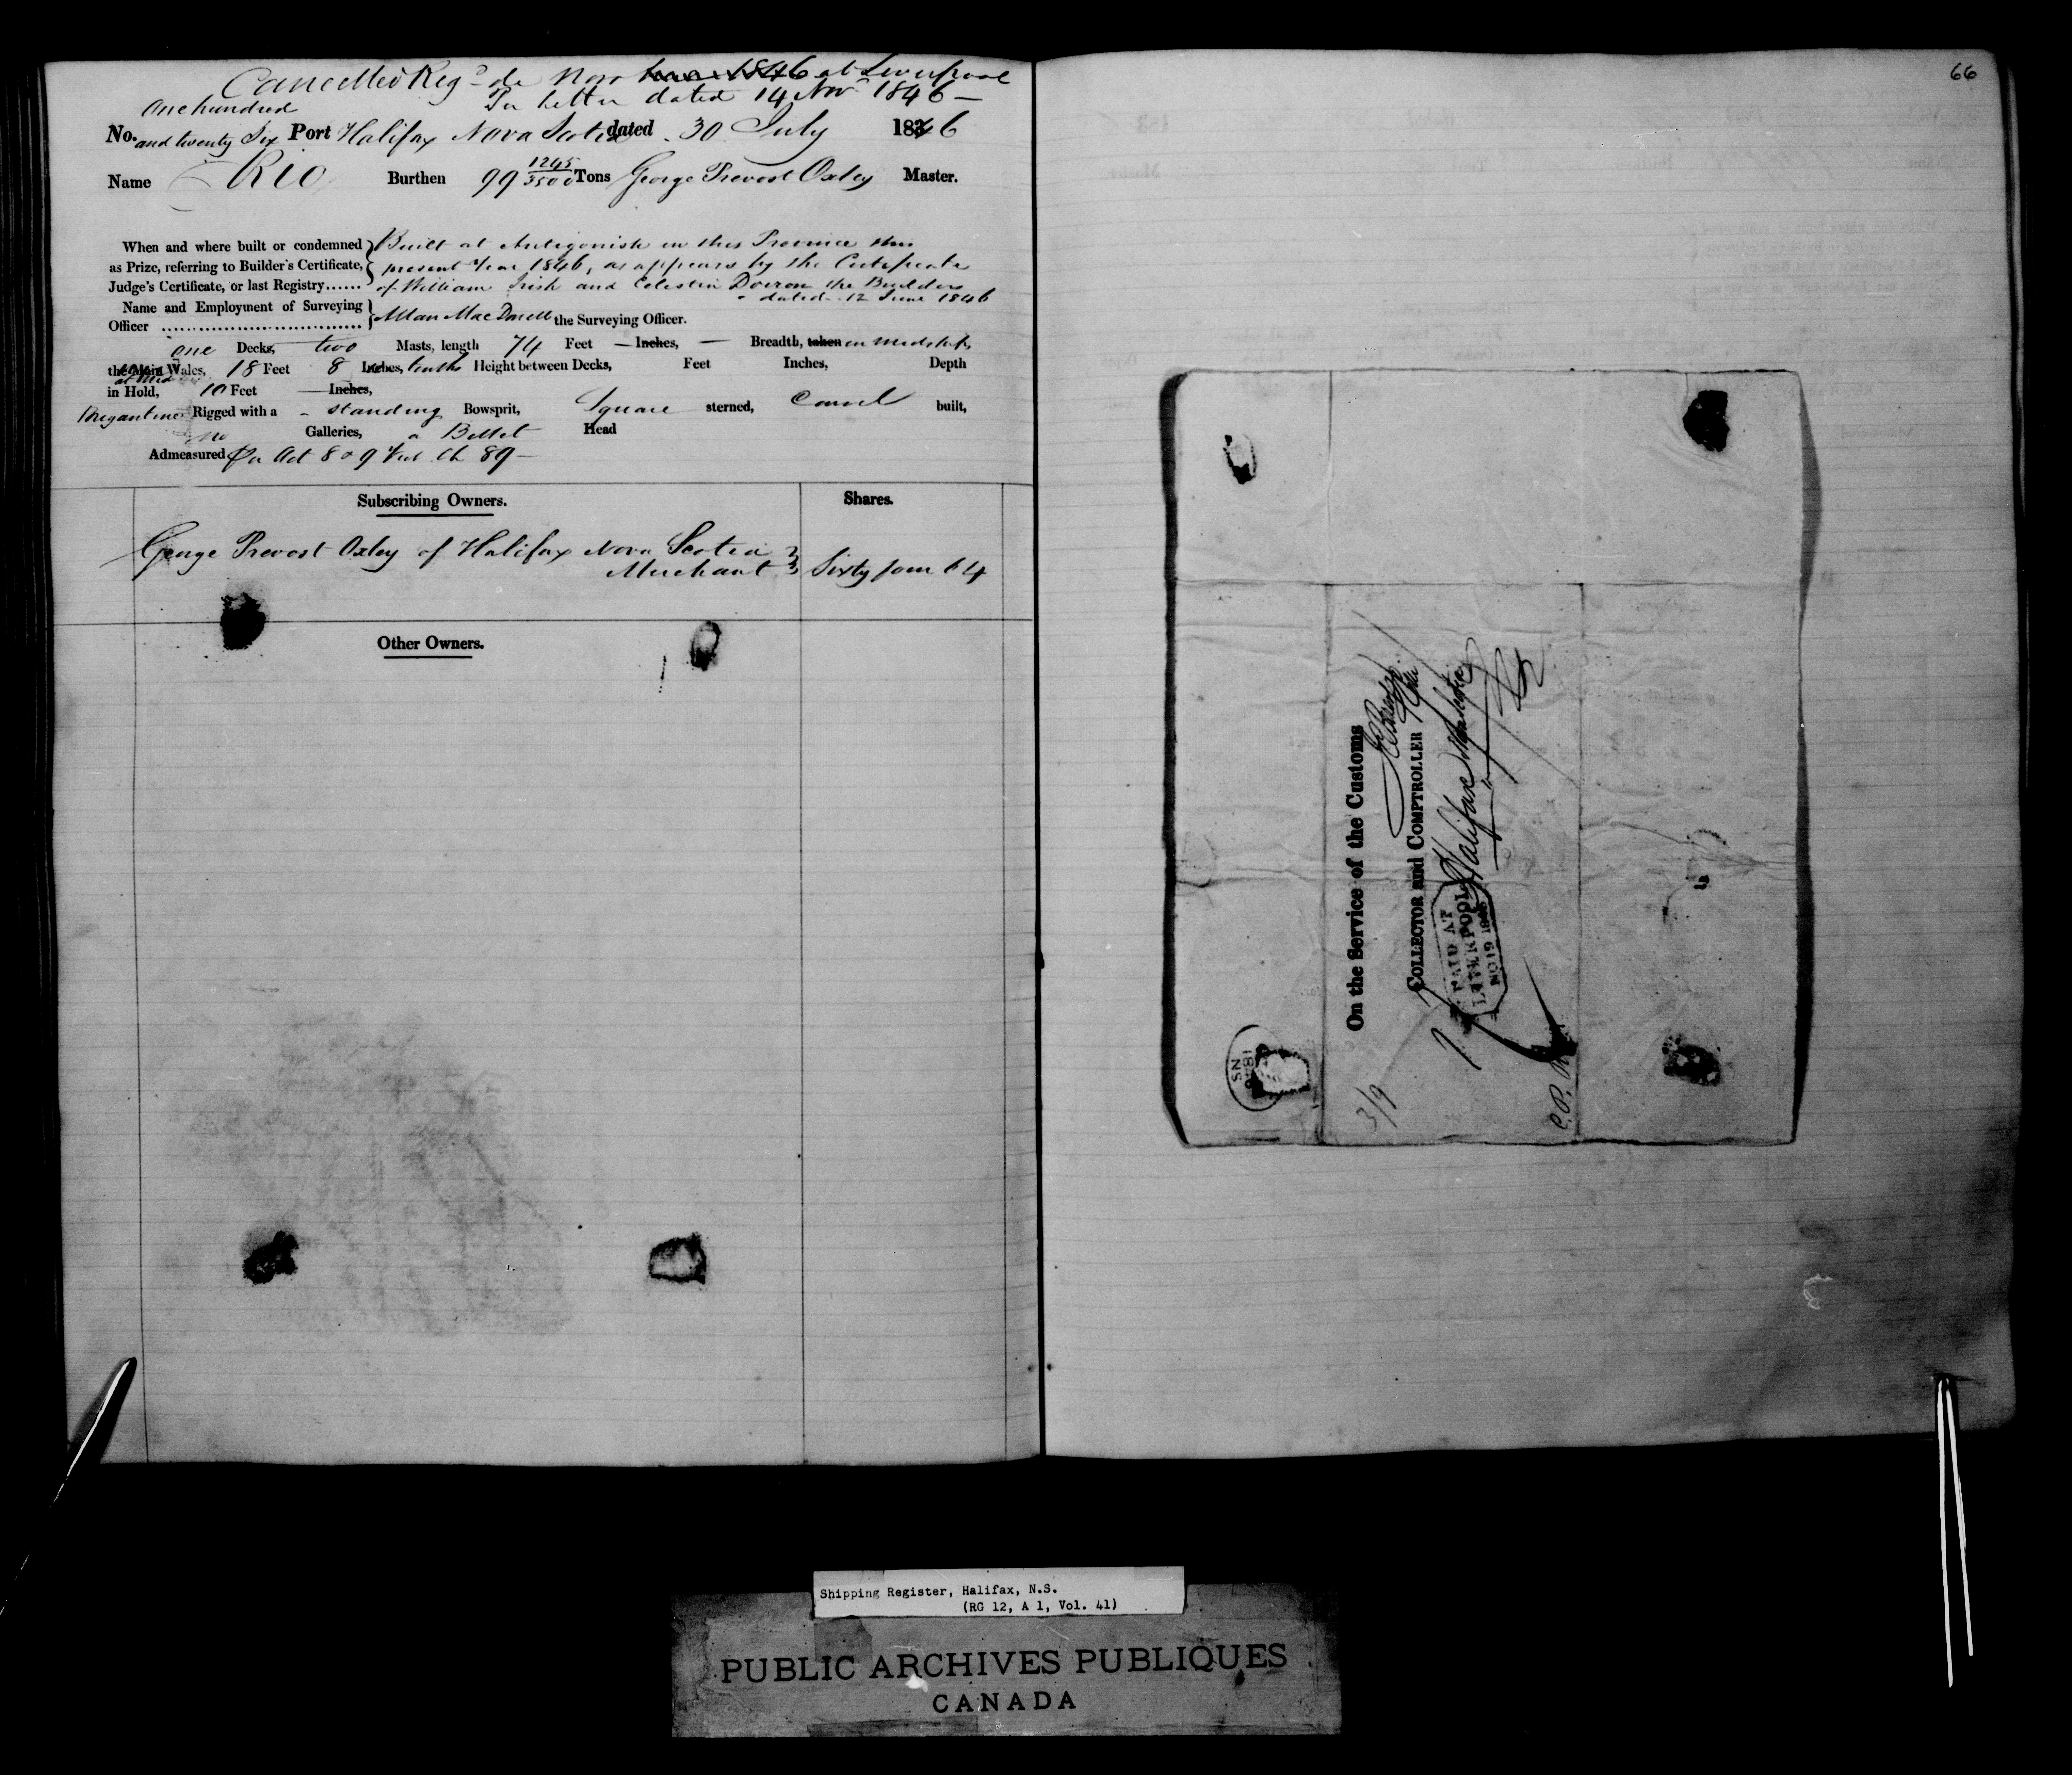 Cancelled Regd de Novo at Liverpool
Per letter dated 14 Nov 1846 —
one hundred
No. and twenty Six Port Halifax Nova Scotia dated 30 July 1846
Name Rio Burthen 99 1245/3500 Tons George Prevost Oxley Master.
When and where built or condemned Built at Antigonish in this Province this
as Prize, referring to Builder's Certificate, present Year 1846, as appears by the Certificate
Judge's Certificate, or last Registry...... of William Irish and Celestin Doiron the Builders
dated 12 June 1846
Name and Employment of Surveying
Officer .............................. Allan MacDonell the Surveying Officer.
one Decks, two Masts, length 74 Feet — Inches, — Breadth, taken in midships
the Main Wales, 18 Feet 8 Inches, tenths Height between Decks, Feet Inches, Depth
at Mid
in Hold, 10 Feet — Inches,
Brigantine Rigged with a - standing Bowsprit, Square sterned, Carvel built,
no Galleries, a Billet Head
Admeasured Per Act 8 & 9 Vict. Ch 89 —
Subscribing Owners. Shares.
George Prevost Oxley of Halifax Nova Scotia
Merchant Sixty four 64
Other Owners.
66
On the Service of the Customs
COLLECTOR and COMPTROLLER
Halifax Nova Scotia
PAID AT
LIVERPOOL
NO 19 1846
3/9
NS
Shipping Register, Halifax, N.S.
(RG 12, A 1, Vol. 41)
PUBLIC ARCHIVES PUBLIQUES
CANADA